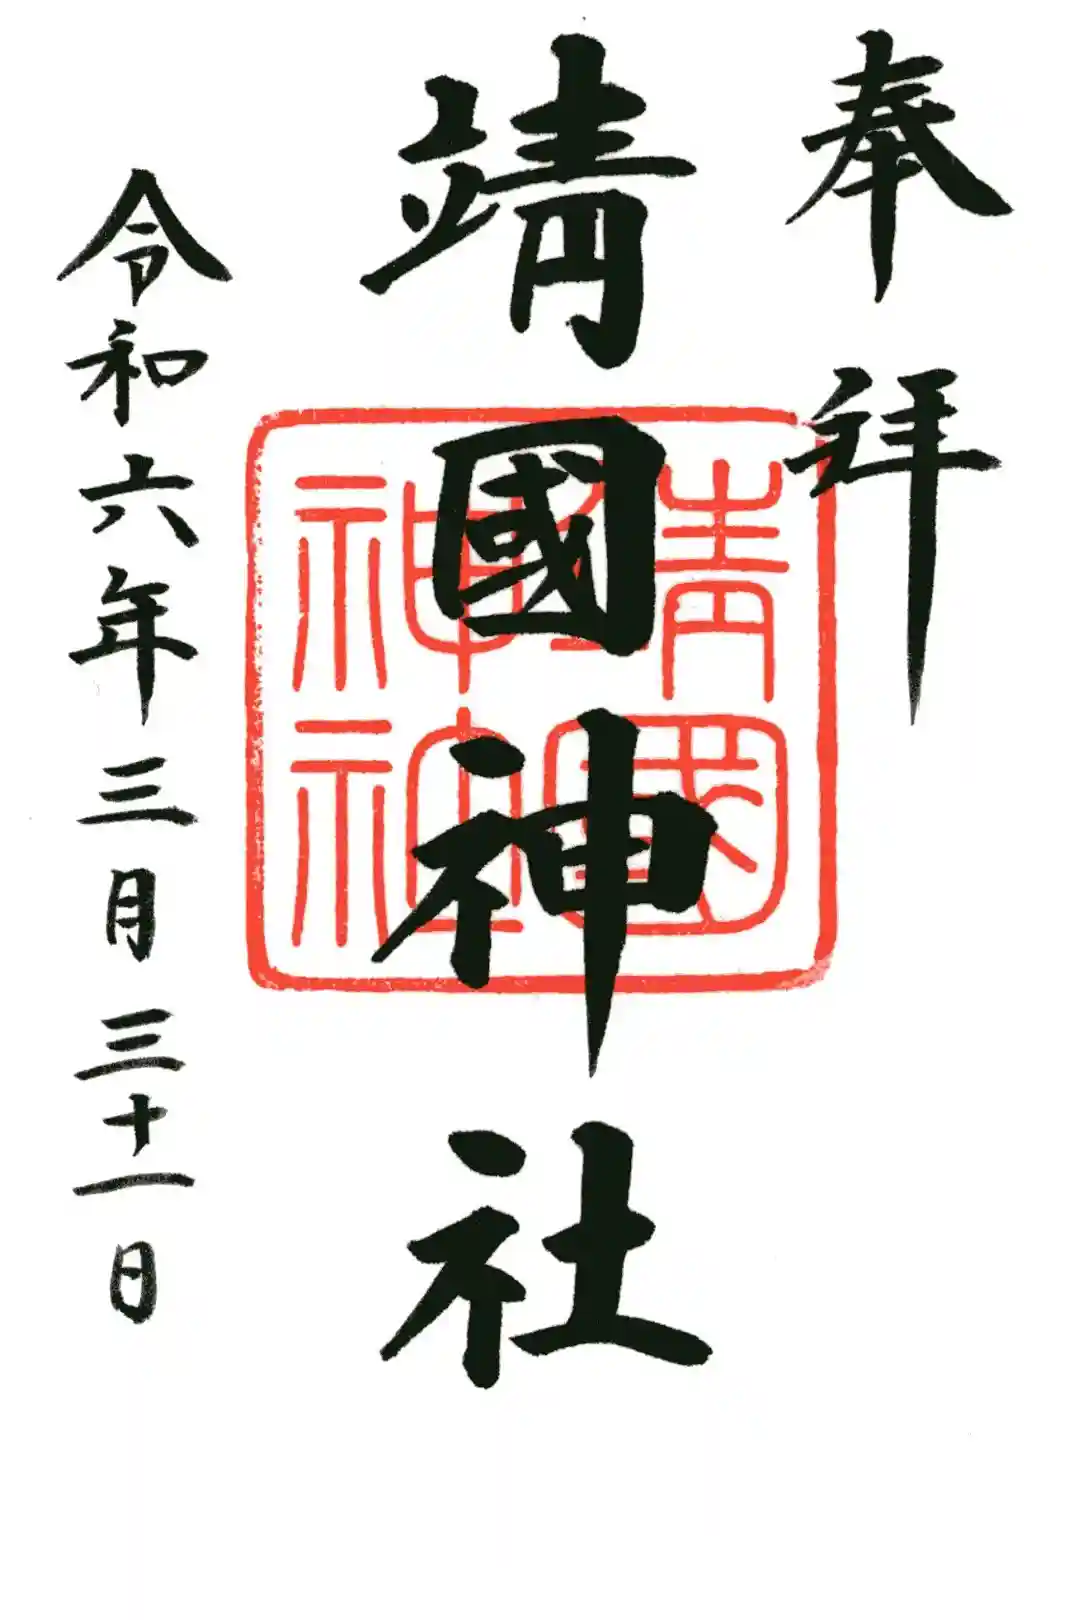 奉拜
靖國神社
靖國
神社
令和六年三月三十一日